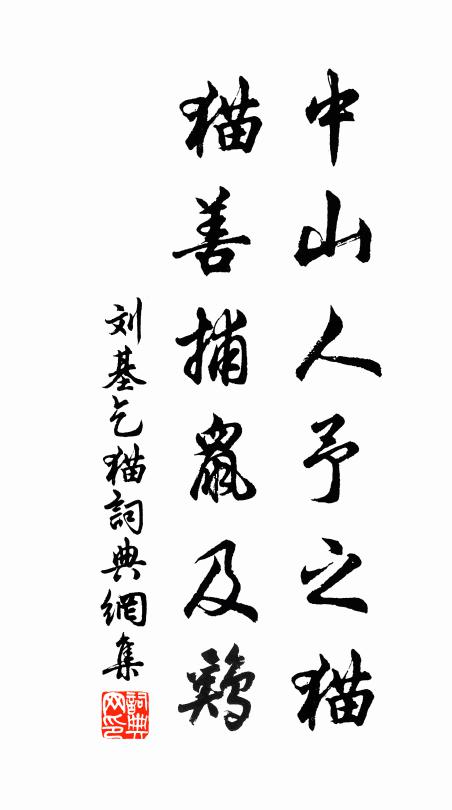 中山人予之猫
猫善捕鼠及鷄
刘基乞猫詞典網集
詞典网印